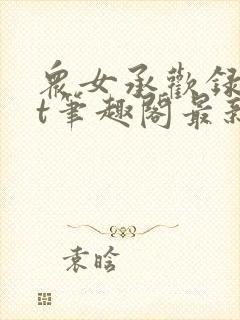 衆女承歡録
t筆趣閣最新
袁晗